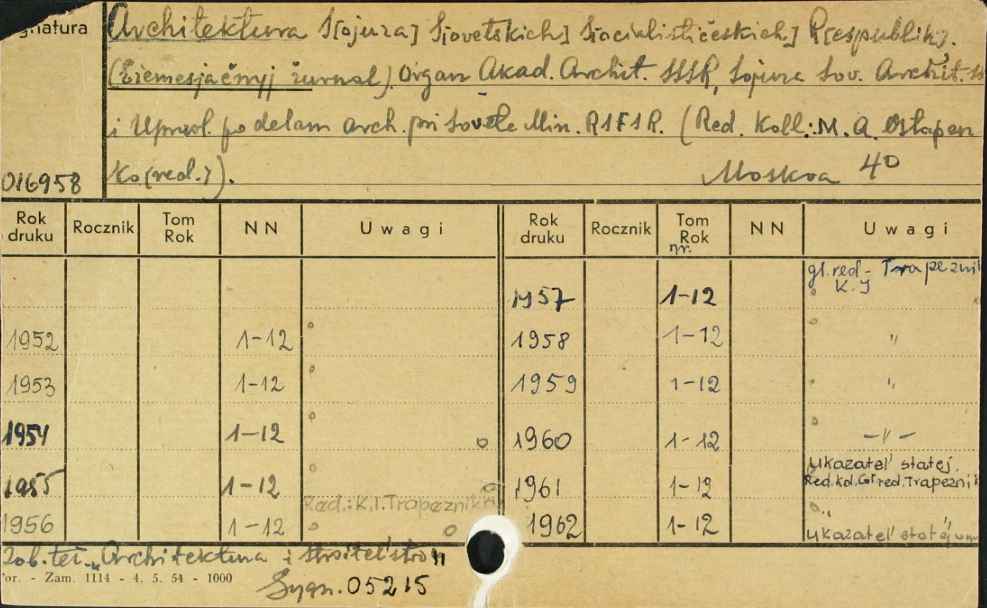 Architektura S[ojuza] S[ovetskich] S[ocialističeskich] R[espublik].
(Ežemesjačnyj žurnal). Organ Akad. Archit. SSSR, Sojuza Sov. Archit.
i Upravl. po delam arch. pri Sovete Min. RSFSR. (Red. Koll.: M. A. Ostapen
ko (red.)). Moskva 4°
gnatura
016958
Rok druku Rocznik Tom Rok NN Uwagi Rok druku Rocznik Tom Rok NN Uwagi
nr.
1957 1-12 gl. red. - Trapezni
K. I
1952 1-12 1958 1-12 "
1953 1-12 1959 1-12 "
1954 1-12 1960 1-12 -"-
1955 1-12 1961 1-12 Ukazatel' statej.
Red. kol. Gł red. Trapezni
1956 1-12 Red.: K.I. Trapeznikov 1962 1-12 "
Ukazatel' statej
Zob. też. "Architektura i stroitel'stvo"
or. - Zam. 1114 - 4. 5. 54 - 1000
Sygn. 05215